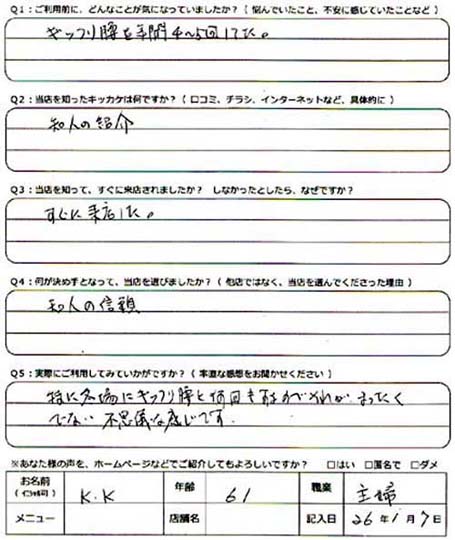 Q1：ご利用前に、どんなことが気になっていましたか？（ 悩んでいたこと、不安に感じていたことなど ）
ギックリ腰を年間4~5回してた。
Q2：当店を知ったキッカケは何ですか？（ 口コミ、チラシ、インターネットなど、具体的に ）
知人の紹介
Q3：当店を知って、すぐに来店されましたか？ しなかったとしたら、なぜですか？
すぐに来店した。
Q4：何が決め手となって、当店を選びましたか？（ 他店ではなく、当店を選んでくださった理由 ）
知人の信頼
Q5：実際にご利用してみていかがですか？（ 率直な感想をお聞かせください ）
特に冬場にギックリ腰を何回もするのがそれがまったく
でない 不思議な感じです。
※あなた様の声を、ホームページなどでご紹介してもよろしいですか？ □はい □匿名で □ダメ
お名前 K.K 年齢 61 職業 主婦
（イニシャル可）
メニュー 店舗名 記入日 26年1月7日